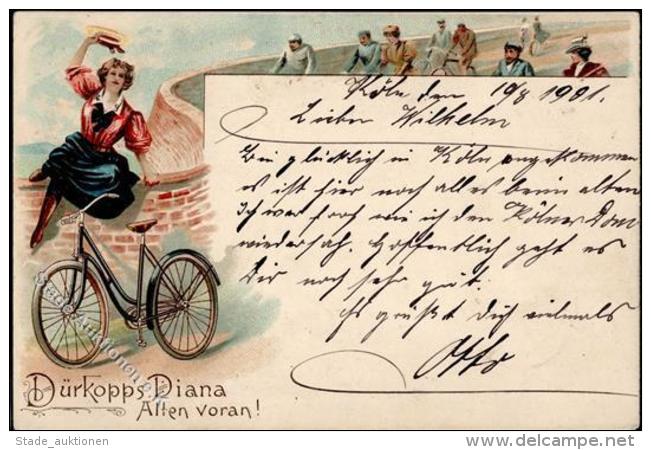 Köln den 19/8 1901.
Lieber Wilhelm
Bin glücklich in Köln angekommen
es ist hier noch alles beim alten
Ich war froh wie ich den Kölner Dom
wiedersah. Hoffentlich geht es
Dir noch sehr gut.
Es grüßt Dich vielmals
Otto
Dürkopps Diana
Allen voran!
Stade_auktionen
www.delcampe.net